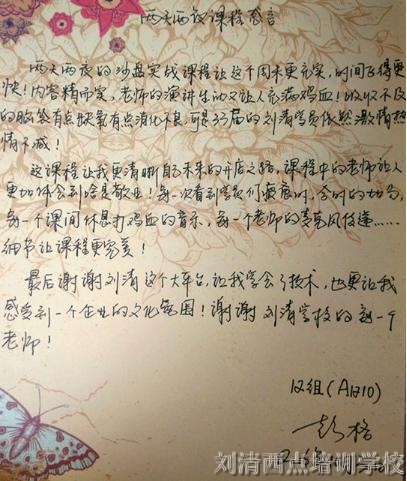 两天两夜课程感言
两天两夜的沙盘实战课程让这个周末更充实，时间飞得更
快！内容精而实，老师的演讲生动又让人充满鸡血！吸收不及
的脑袋有点缺氧有点消化不良，可是35届的刘清学员依然激情热
情不减！
这课程让我更清晰自己未来的开店之路，课程中的老师让人
更加体会到啥是敬业！每一次看到学员们疲惫时，
每一个课间休息打鸡血的音乐，每一个老师的麦克风传递……
细节让课程更完美！
最后谢谢刘清这个大平台，让我学会了技术，也更让我
感受到一个企业的文化氛围！谢谢刘清学校的每一个
老师！
12组(A1210)
彭格
刘清西点培训学校